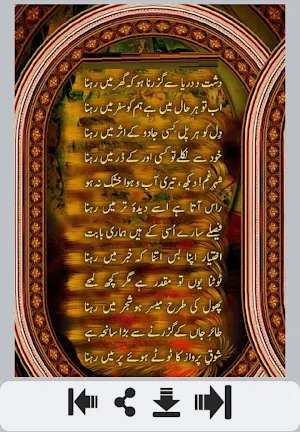 دشت و دریا سے گزرنا ہو کہ گھر میں رہنا
اب تو ہر حال میں ہے ہم کو سفر میں رہنا
دل کو ہر پل کسی جادو کے اثر میں رہنا
خود سے نکلے تو کسی اور کے ڈر میں رہنا
شہرِ غم! دیکھ، تیری آب و ہوا خشک نہ ہو
راس آتا ہے اسے دیدۂ تر میں رہنا
فیصلے سارے اُسی کے ہیں ہماری بابت
اختیار اپنا بس اتنا کہ خبر میں رہنا
ٹوٹنا یوں تو مقدر ہے مگر کچھ لمحے
پھول کی طرح میسر ہو شجر میں رہنا
طائرِ جاں کے گزرنے سے بڑا سانحہ ہے
شوقِ پرواز کا ٹوٹے ہوئے پر میں رہنا